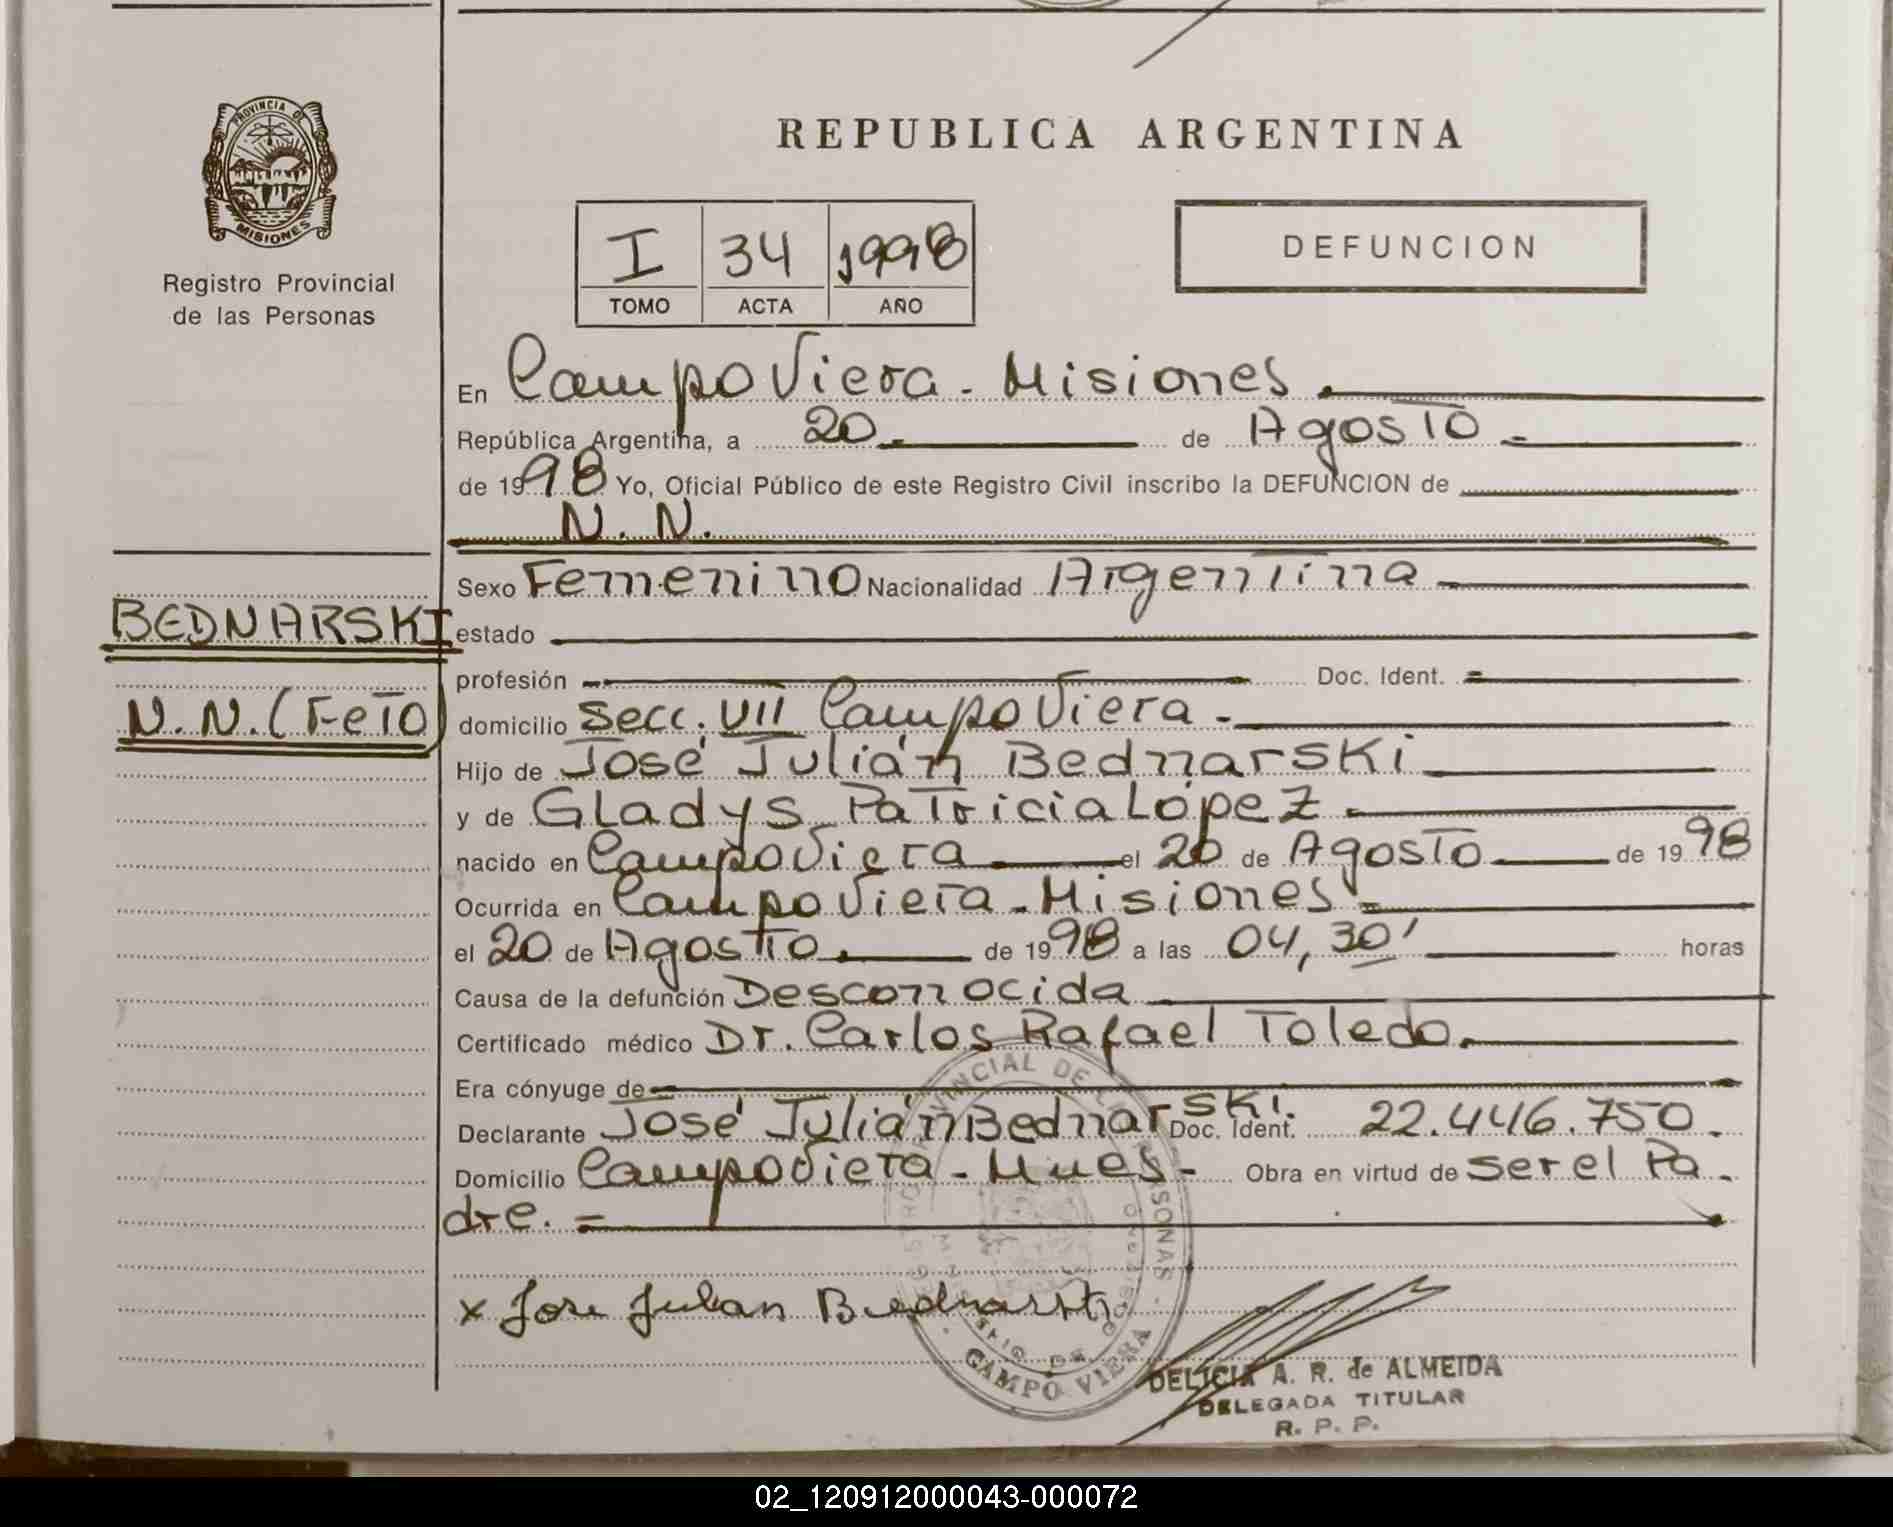 PROVINCIA DE
MISIONES
Registro Provincial
de las Personas
BEDNARSKI
N.N. (FeTo)
REPUBLICA ARGENTINA
I 34 1998
TOMO ACTA AÑO
DEFUNCION
En Campo Viera - Misiones.
República Argentina, a 20 de Agosto
de 1998 Yo, Oficial Público de este Registro Civil inscribo la DEFUNCION de
N. N.
Sexo Femenino Nacionalidad Argentina
estado
profesión Doc. Ident.
domicilio Secc. VII Campo Viera -
Hijo de José Julián Bednarski
y de Gladys Patricia López
nacido en Campo Viera el 20 de Agosto de 1998
Ocurrida en Campo Viera - Misiones
el 20 de Agosto de 1998 a las 04,30' horas
Causa de la defunción Desconocida
Certificado médico Dr. Carlos Rafael Toledo.
Era cónyuge de
Declarante José Julián Bednarski. Doc. Ident. 22.446.750.
Domicilio Campo Viera - Mnes - Obra en virtud de ser el Pa-
dre. =
x Jose Julian Bednarski
CAMPO VIERA
DELICIA A. R. de ALMEIDA
DELEGADA TITULAR
R. P. P.
02_120912000043-000072